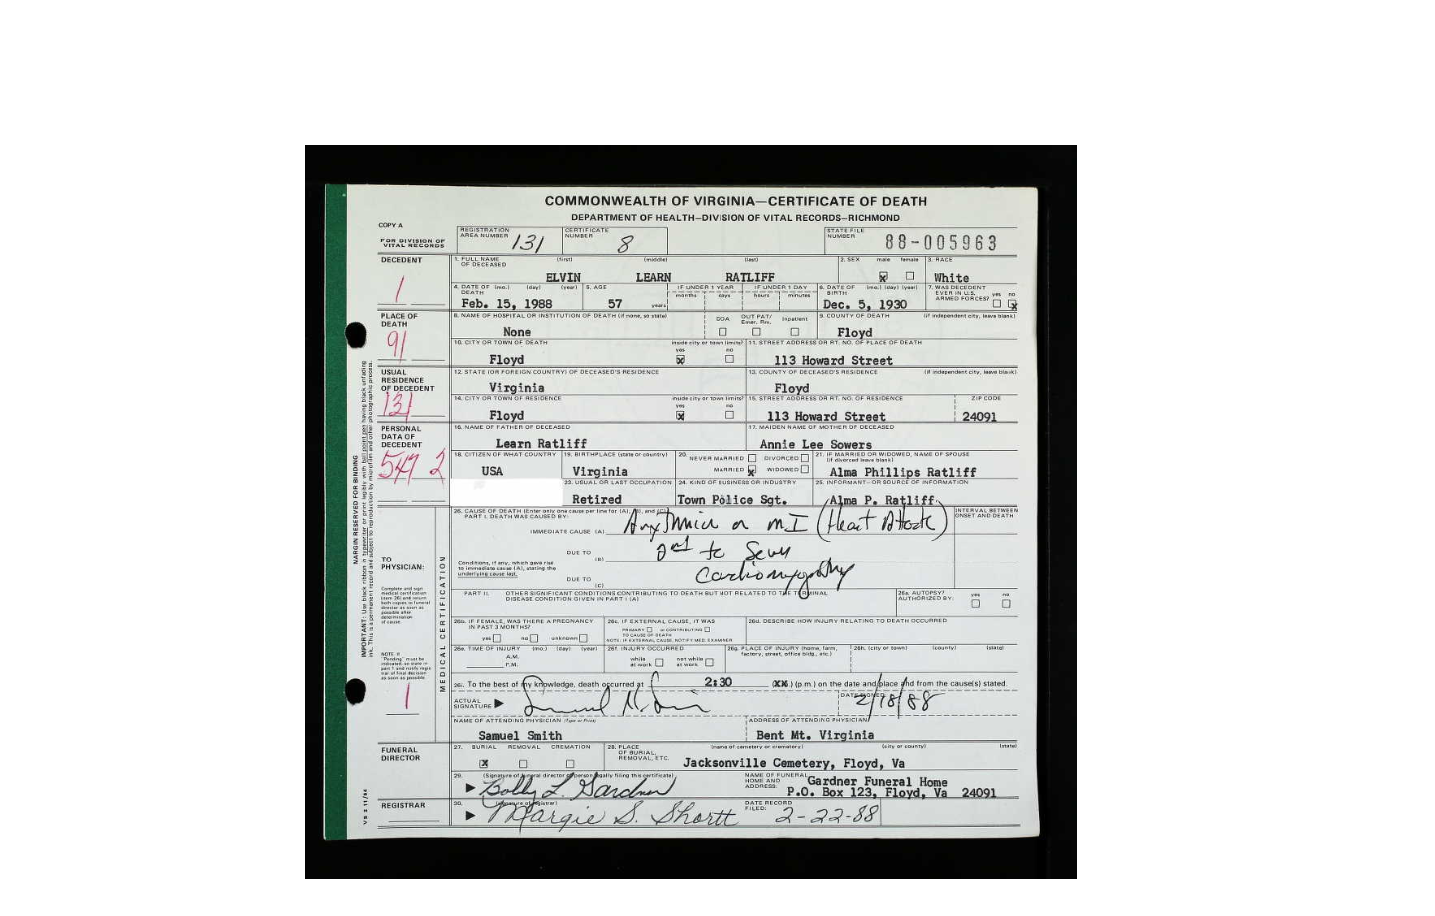 COMMONWEALTH OF VIRGINIA—CERTIFICATE OF DEATH
DEPARTMENT OF HEALTH—DIVISION OF VITAL RECORDS—RICHMOND
COPY A
FOR DIVISION OF VITAL RECORDS
REGISTRATION AREA NUMBER 131
CERTIFICATE NUMBER 8
STATE FILE NUMBER 88-005963
DECEDENT
1
1. FULL NAME OF DECEASED (first) (middle) (last)
ELVIN LEARN RATLIFF
2. SEX male female
x
3. RACE
White
4. DATE OF DEATH (mo.) (day) (year)
Feb. 15, 1988
5. AGE
57 years
IF UNDER 1 YEAR months days
IF UNDER 1 DAY hours minutes
6. DATE OF BIRTH (mo.) (day) (year)
Dec. 5, 1930
7. WAS DECEDENT EVER IN U.S. ARMED FORCES? yes no
x
PLACE OF DEATH
91
8. NAME OF HOSPITAL OR INSTITUTION OF DEATH (if none, so state)
None
DOA OUT PAT/ Emer. Rm. Inpatient
9. COUNTY OF DEATH (if independent city, leave blank)
Floyd
10. CITY OR TOWN OF DEATH inside city or town limits? yes no
Floyd x
11. STREET ADDRESS OR RT. NO. OF PLACE OF DEATH
113 Howard Street
USUAL RESIDENCE OF DECEDENT
131
12. STATE (OR FOREIGN COUNTRY) OF DECEASED'S RESIDENCE
Virginia
13. COUNTY OF DECEASED'S RESIDENCE (if independent city, leave blank)
Floyd
14. CITY OR TOWN OF RESIDENCE inside city or town limits? yes no
Floyd x
15. STREET ADDRESS OR RT. NO. OF RESIDENCE ZIP CODE
113 Howard Street 24091
PERSONAL DATA OF DECEDENT
547 2
16. NAME OF FATHER OF DECEASED
Learn Ratliff
17. MAIDEN NAME OF MOTHER OF DECEASED
Annie Lee Sowers
18. CITIZEN OF WHAT COUNTRY
USA
19. BIRTHPLACE (state or country)
Virginia
20. NEVER MARRIED DIVORCED
MARRIED x WIDOWED
21. IF MARRIED OR WIDOWED, NAME OF SPOUSE (if divorced leave blank)
Alma Phillips Ratliff
23. USUAL OR LAST OCCUPATION
Retired
24. KIND OF BUSINESS OR INDUSTRY
Town Police Sgt.
25. INFORMANT—OR SOURCE OF INFORMATION
Alma P. Ratliff
MARGIN RESERVED FOR BINDING
TO PHYSICIAN:
Complete and sign medical certification
MEDICAL CERTIFICATION
26. CAUSE OF DEATH (Enter only one cause per line for (A), (B), and (C))
PART I. DEATH WAS CAUSED BY:
INTERVAL BETWEEN ONSET AND DEATH
IMMEDIATE CAUSE (A) Arrythmia or MI (Heart Attack)
DUE TO (B) 2nd to Severe
Conditions, if any, which gave rise to immediate cause (A), stating the underlying cause last.
DUE TO (C) Cardiomyopathy
PART II. OTHER SIGNIFICANT CONDITIONS CONTRIBUTING TO DEATH BUT NOT RELATED TO THE TERMINAL DISEASE CONDITION GIVEN IN PART I (A)
26a. AUTOPSY? AUTHORIZED BY: yes no
26b. IF FEMALE, WAS THERE A PREGNANCY IN PAST 3 MONTHS?
yes no unknown
26c. IF EXTERNAL CAUSE, IT WAS
PRIMARY or CONTRIBUTING
TO CAUSE OF DEATH
NOTE: IF EXTERNAL CAUSE, NOTIFY MED. EXAMINER
26d. DESCRIBE HOW INJURY RELATING TO DEATH OCCURRED
26e. TIME OF INJURY (mo.) (day) (year)
A.M.
P.M.
26f. INJURY OCCURRED
while at work not while at work
26g. PLACE OF INJURY (home, farm, factory, street, office bldg., etc.)
26h. (city or town) (county) (state)
1
To the best of my knowledge, death occurred at 2:30 (xx) (p.m.) on the date and place and from the cause(s) stated.
ACTUAL SIGNATURE
DATE SIGNED
2/18/88
NAME OF ATTENDING PHYSICIAN (Type or Print)
Samuel Smith
ADDRESS OF ATTENDING PHYSICIAN
Bent Mt. Virginia
FUNERAL DIRECTOR
27. BURIAL REMOVAL CREMATION
x
28. PLACE OF BURIAL, REMOVAL, ETC. (name of cemetery or crematory) (city or county) (state)
Jacksonville Cemetery, Floyd, Va
29. (Signature of funeral director or person legally filing this certificate)
Bobby L. Gardner
NAME OF FUNERAL HOME AND ADDRESS:
Gardner Funeral Home
P.O. Box 123, Floyd, Va 24091
REGISTRAR
30. (Signature of registrar)
Margie S. Shortt
DATE RECORD FILED:
2-22-88
VS 2 11/84